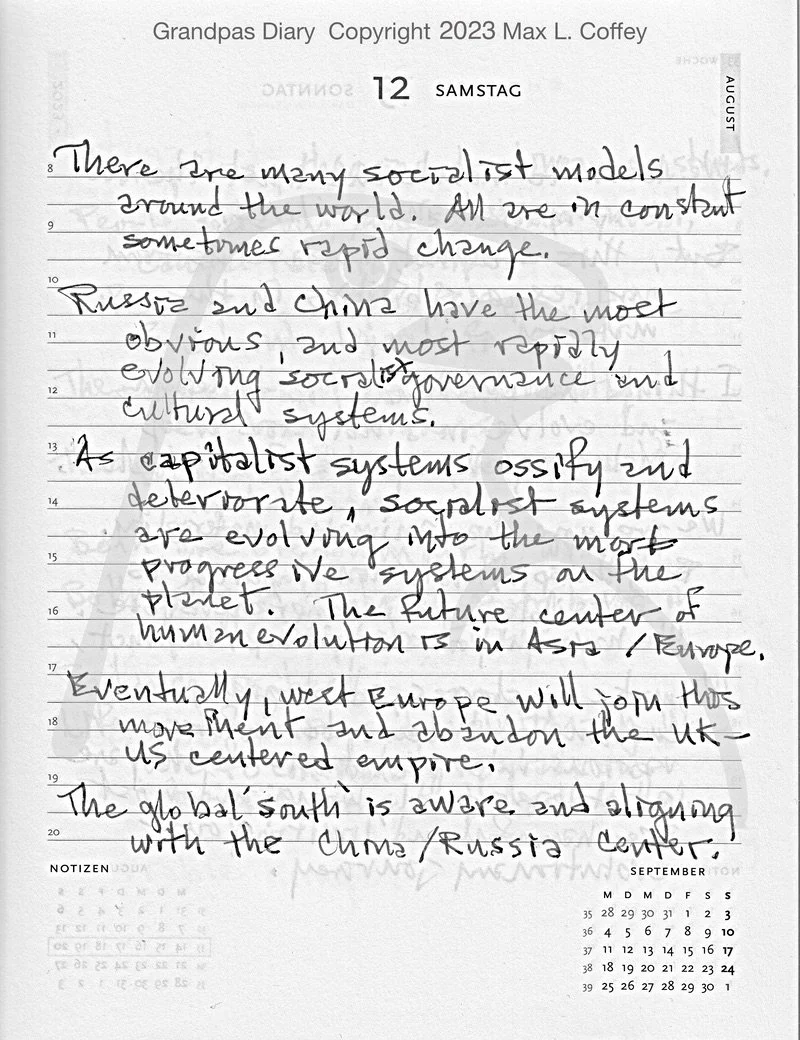 Grandpas Diary Copyright 2023 Max L. Coffey
12 SAMSTAG
AUGUST
8 There are many socialist models
around the world. All are in constant
9
sometimes rapid change.
10
Russia and China have the most
11
obvious, and most rapidly
evolving socialist governance and
12
cultural systems.
13
As capitalist systems ossify and
14 deteriorate, socialist systems
are evolving into the most
15
progressive systems on the
planet. The future center of
16
human evolution is in Asia / Europe.
17
Eventually, west Europe will join this
18 movement and abandon the UK-
US centered empire.
19
The global 'south' is aware and aligning
20 with the China/Russia center.
NOTIZEN
SEPTEMBER
M D M D F S S
35 28 29 30 31 1 2 3
36 4 5 6 7 8 9 10
37 11 12 13 14 15 16 17
38 18 19 20 21 22 23 24
39 25 26 27 28 29 30 1